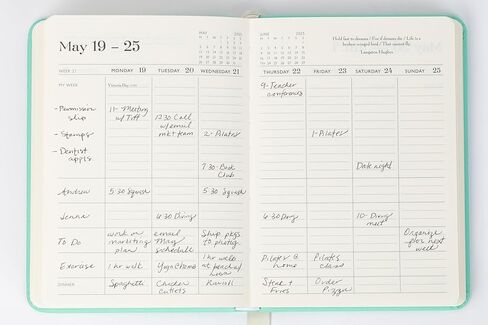 May 19 – 25
MAY 2025
JUNE 2025
Hold fast to dreams / For if dreams die / Life is a
broken-winged bird / That cannot fly.
Langston Hughes
WEEK 21
MONDAY 19
TUESDAY 20
WEDNESDAY 21
THURSDAY 22
FRIDAY 23
SATURDAY 24
SUNDAY 25
MY WEEK
Victoria Day
9-Teacher
conference
-Permission
slip
11- Meeting
w/ Tiff
12:30 Call
w/ email
mkt team
-Stamps
2-Pilates
1-Pilates
-Dentist
appts
7:30-Book
Club
Date night
Andrew
5:30 Squash
5:30 Squash
Jenna
4:30 Diving
4:30 Diving
10- Diving
meet
To Do
work on
marketing
plan
email
May
schedule
Ship pkgs
to photog.
Organize
for next
week
Exercise
1 hr walk
Yoga@home
1 hr walk
at beach w/
Pilates @
home
Pilates
class
DINNER
Spaghetti
Chicken
cutlets
Ravioli
Steak +
Fries
Order
Pizza